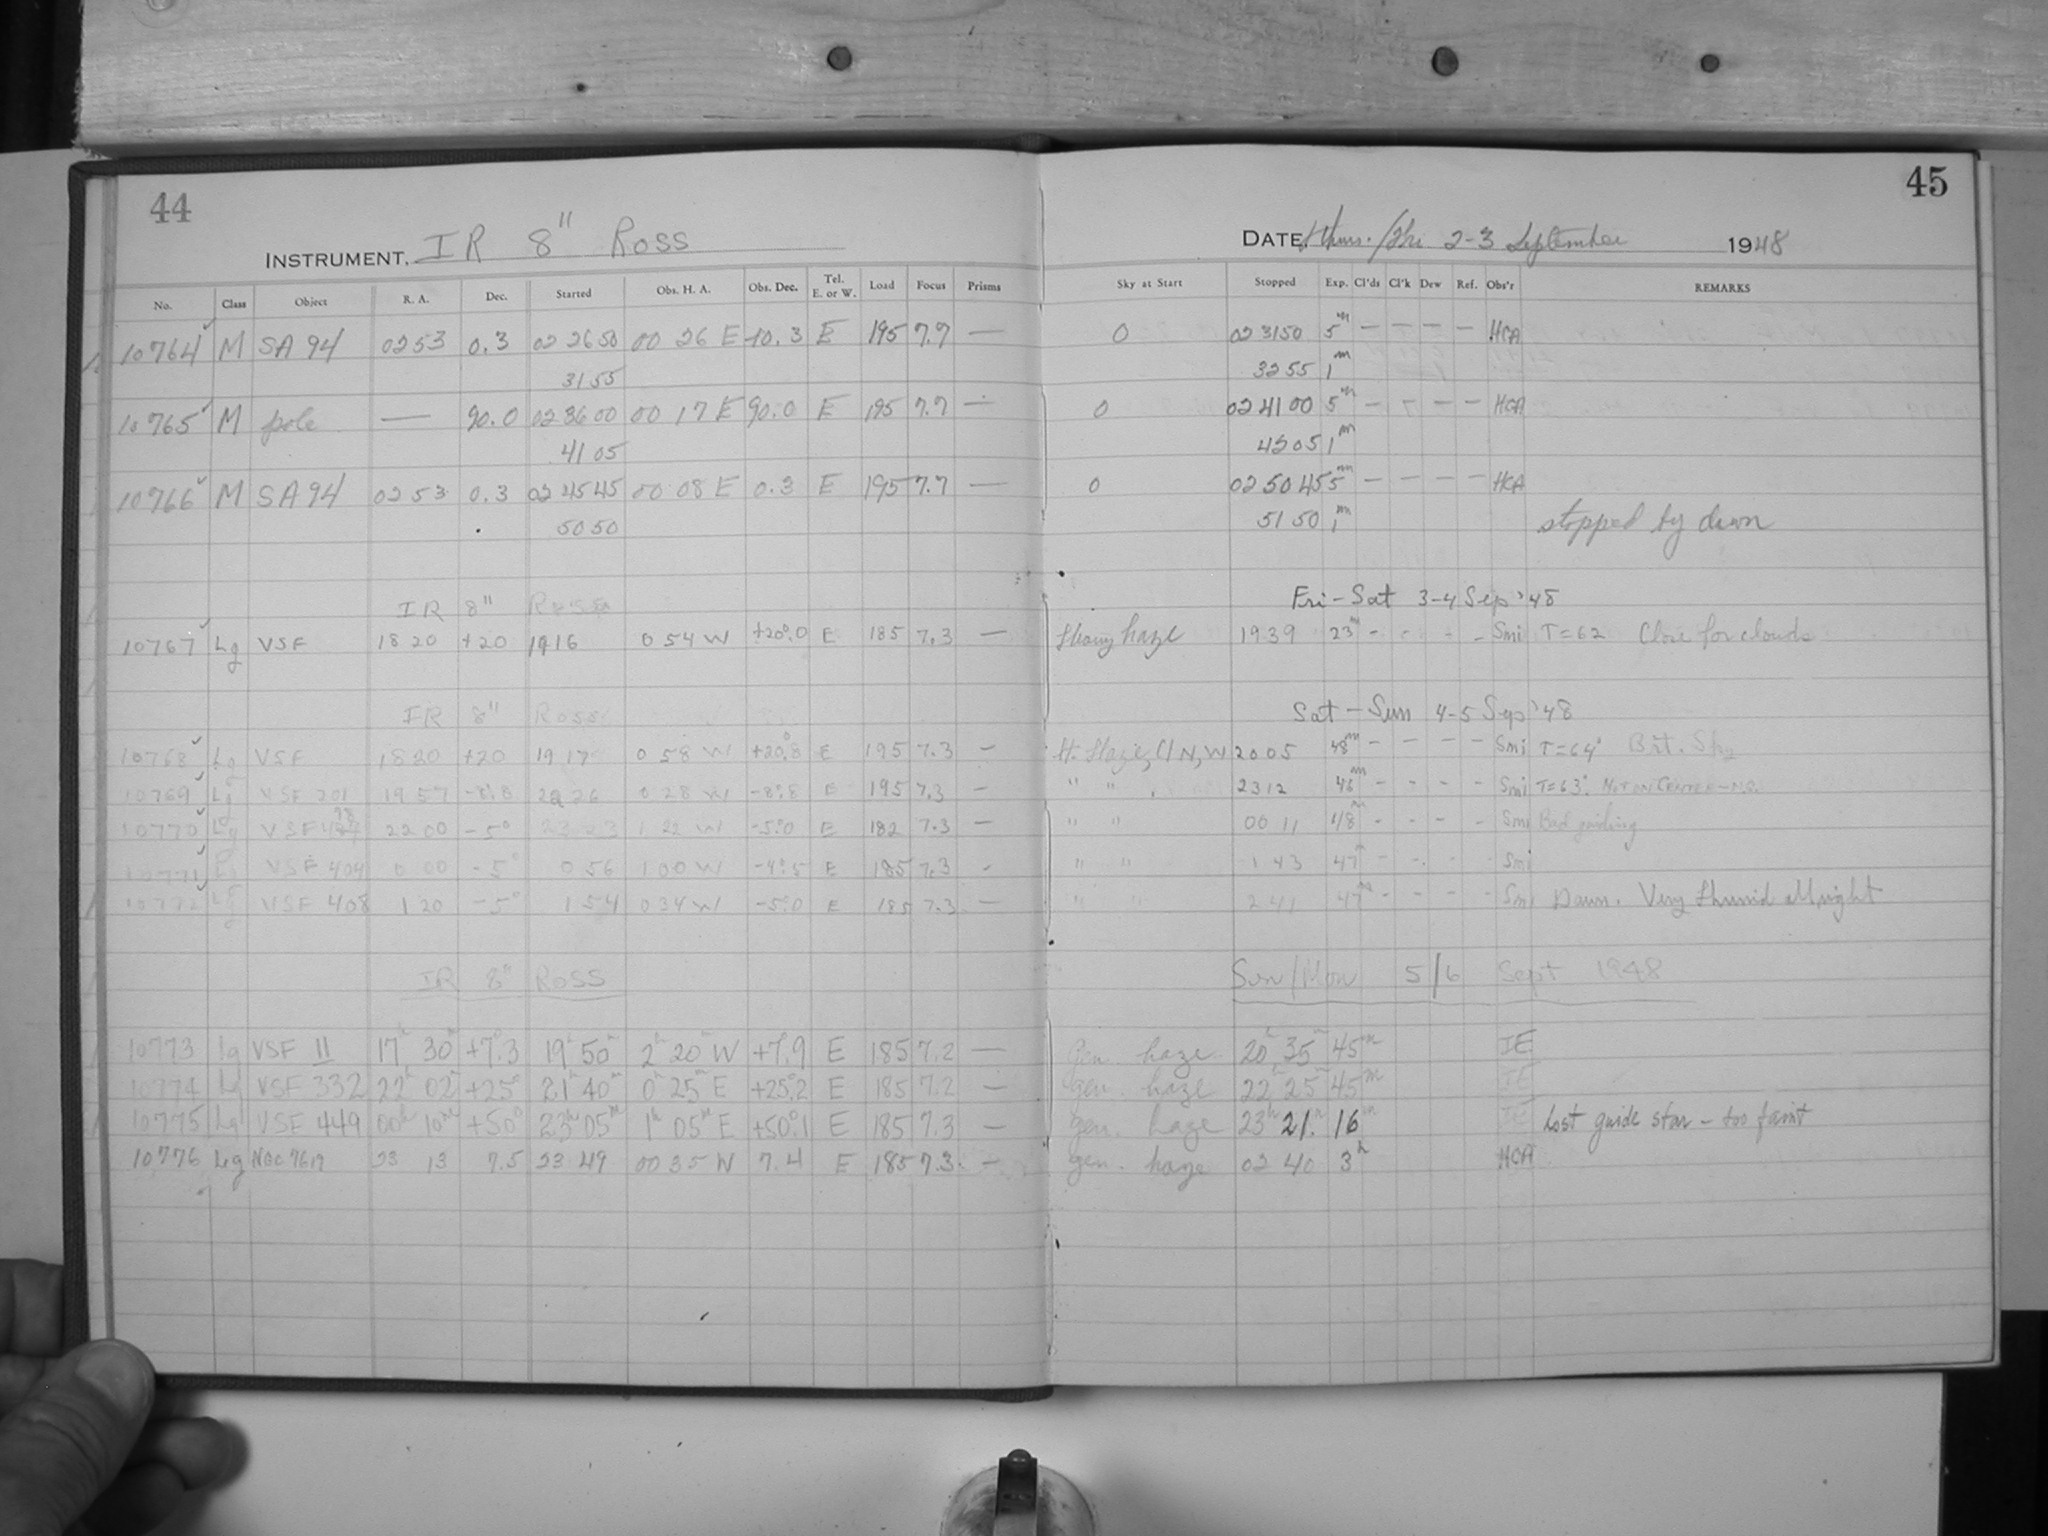 44
INSTRUMENT, IR 8" ROSS
No. Class Object R. A. Dec. Started Obs. H. A. Obs. Dec. Tel. E. or W. Load Focus Prisms
10764 M SA 94 02 53 0.3 02 26 50 00 26 E +0.3 E 195 7.7 —
31 55
10765 M pole — 90.0 02 36 00 00 17 E 90.0 E 195 7.7 —
41 05
10766 M SA 94 02 53 0.3 02 45 45 00 08 E 0.3 E 195 7.7 —
50 50
IR 8" Ross
10767 Lg VSF 18 20 +20 1916 0 54 W +20°.0 E 185 7.3 —
IR 8" Ross
10768 Lg VSF 18 20 +20 19 17 0 58 W +20°.8 E 195 7.3 —
10769 Lg VSF 201 19 57 -8°.8 26 0 28 W -8°.8 E 195 7.3 —
10770 Lg VSF 22 00 -5° 23 23 1 22 W -5°.0 E 182 7.3 —
10771 Lg VSF 404 0 00 -5° 0 56 1 00 W -4°.5 E 185 7.3 -
10772 Lg VSF 408 1 20 -5° 1 54 0 34 W -5°.0 E 185 7.3 —
IR 8" ROSS
10773 Lg VSF 11 17h 30m +7°.3 19h 50m 2h 20m W +7°.9 E 185 7.2 —
10774 Lg VSF 332 22h 02m +25° 21h 40m 0h 25m E +25°.2 E 185 7.2 —
10775 Lg VSF 449 00h 10m +50° 23h 05m 1h 05m E +50°.1 E 185 7.3 —
10776 Lg NGC 7619 23 13 7.5 23 49 00 35 W 7.4 E 185 7.3 —
45
DATE, Thurs./Fri 2-3 September 1948
Sky at Start Stopped Exp. Cl'ds Cl'k Dew Ref. Obs'r REMARKS
0 02 31 50 5m — — — — HCA
32 55 1m
0 02 41 00 5m — — — — HCA
05 1m
0 02 50 45 5m — — — — HCA
51 50 1m stopped by dawn
Fri - Sat 3-4 Sep '48
Heavy haze 19 39 23m - - - - Smi T=62 Close for clouds
Sat - Sun 4-5 Sep '48
H. Haze, Cl N, W 20 05 48m - - - - Smi T=64° Brt. Sky
" " 23 12 46m - - - - Smi T=63°. NOT ON CENTER
" " 00 11 48m - - - - Smi Bad guiding
" " 1 43 47m - - - - Smi
" " 2 41 47m - - - - Smi Dawn. Very Humid all night
Sun/Mon 5/6 Sept 1948
Gen. haze 20h 35m 45m IE
gen. haze 22h 25m 45m IE
gen. haze 23h 21m 16m IE Lost guide star - too faint
gen. haze 02 40 3h HCA